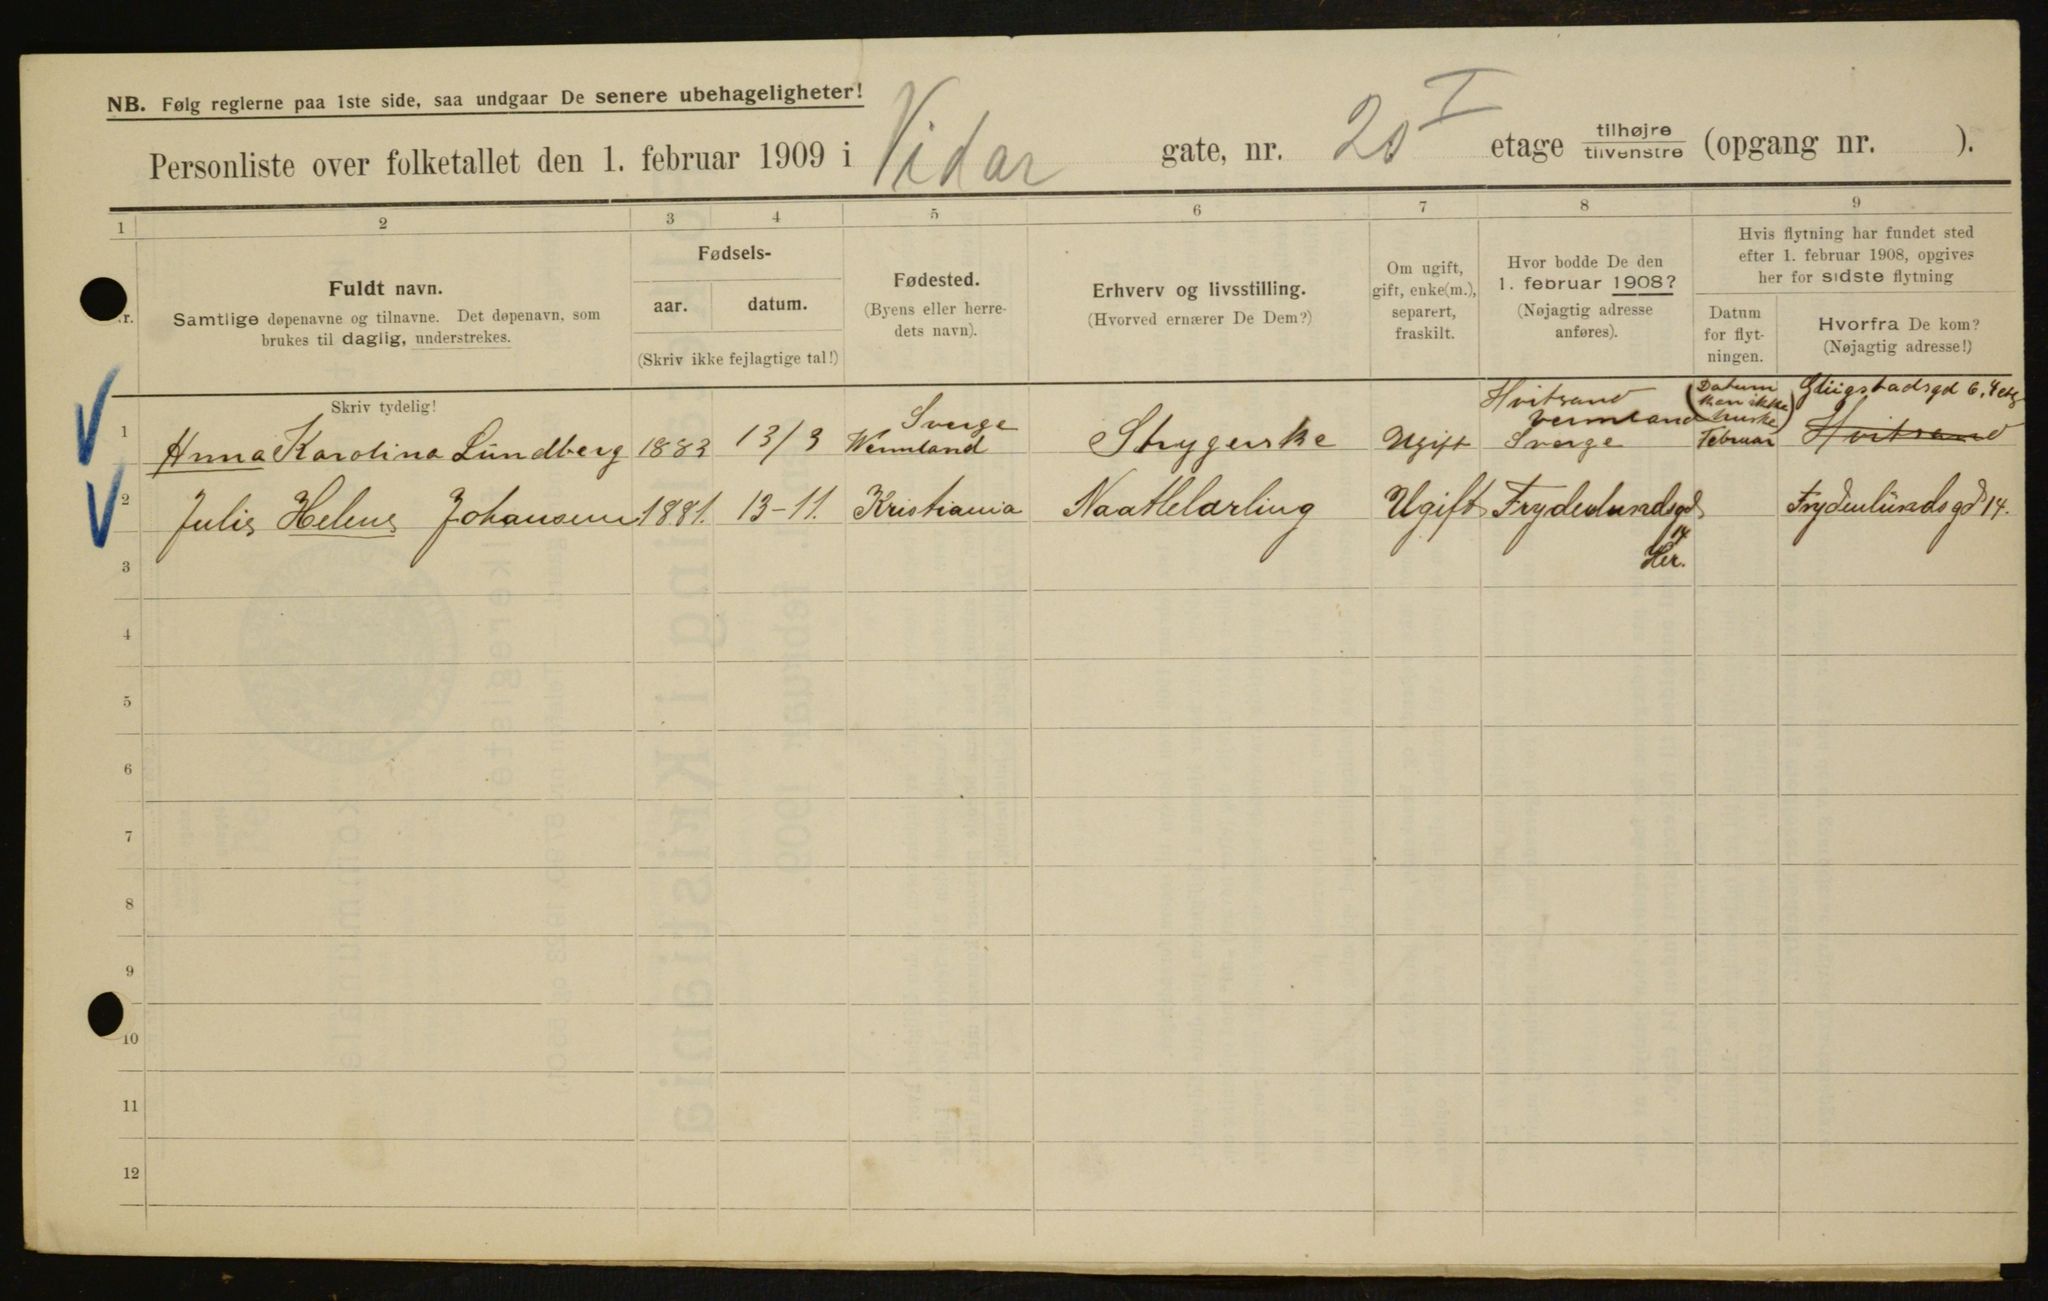 NB. Følg reglerne paa 1ste side, saa undgaar De senere ubehageligheter!
Personliste over folketallet den 1. februar 1909 i Vidar gate, nr. 20 I etage tilhøjre/tilvenstre (opgang nr. ).
1 2 3 4 5 6 7 8 9
Nr.
Fuldt navn.
Samtlige døpenavne og tilnavne. Det døpenavn, som
brukes til daglig, understrekes.
Skriv tydelig!
Fødsels-
aar. datum.
(Skriv ikke fejlagtige tal!)
Fødested.
(Byens eller herre-
dets navn).
Erhverv og livsstilling.
(Hvorved ernærer De Dem?)
Om ugift,
gift, enke(m.),
separert,
fraskilt.
Hvor bodde De den
1. februar 1908?
(Nøjagtig adresse
anføres).
Hvis flytning har fundet sted
efter 1. februar 1908, opgives
her for sidste flytning
Datum
for flyt-
ningen.
Hvorfra De kom?
(Nøjagtig adresse!)
1 Anna Karolina Lundberg 1883 13/3 Sverge
Wermland
Strygerske Ugift Hvitsand
Vermland
Sverge
(Datum
kan ikke
huske)
Februar
Glügstadsgd 6, 4 etg
Hvitsand
2 Julie Helene Johansen 1881. 13-11. Kristiania Naatlelærling Ugift Frydenlundsgd
14
Her.
Frydenlundsgd 14.
3
4
5
6
7
8
9
10
11
12